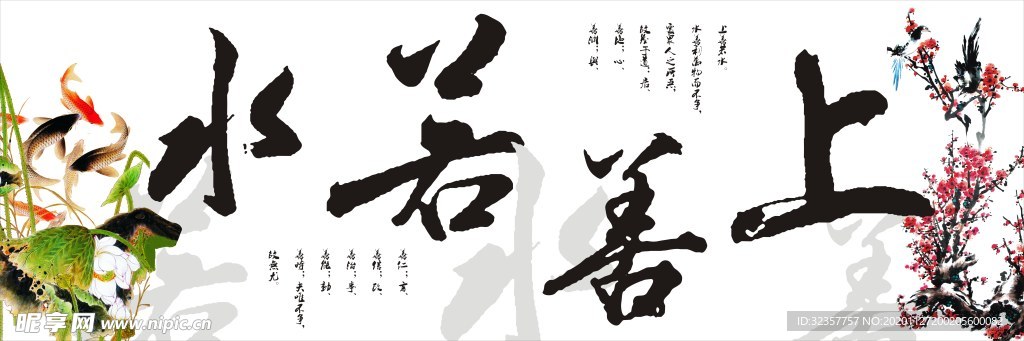 上善若水
上善若水。
水善利萬物而不争、
處眾人之所惡、
故幾于道；居、
善地；心、
善淵；與、
善仁；言、
善信；政、
善治；事、
善能；動、
善時；夫唯不争、
故無尤。
昵享网 www.nipic.cn
ID:32357757 NO:20201127200205600083